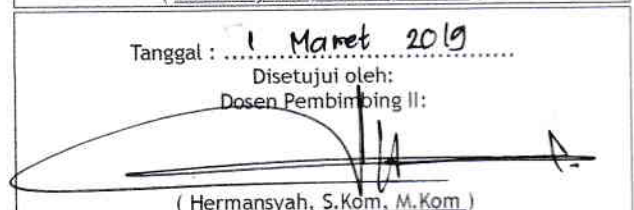 Tanggal : 1 Maret 2019
Disetujui oleh:
Dosen Pembimbing II:
( Hermansyah, S.Kom, M.Kom )